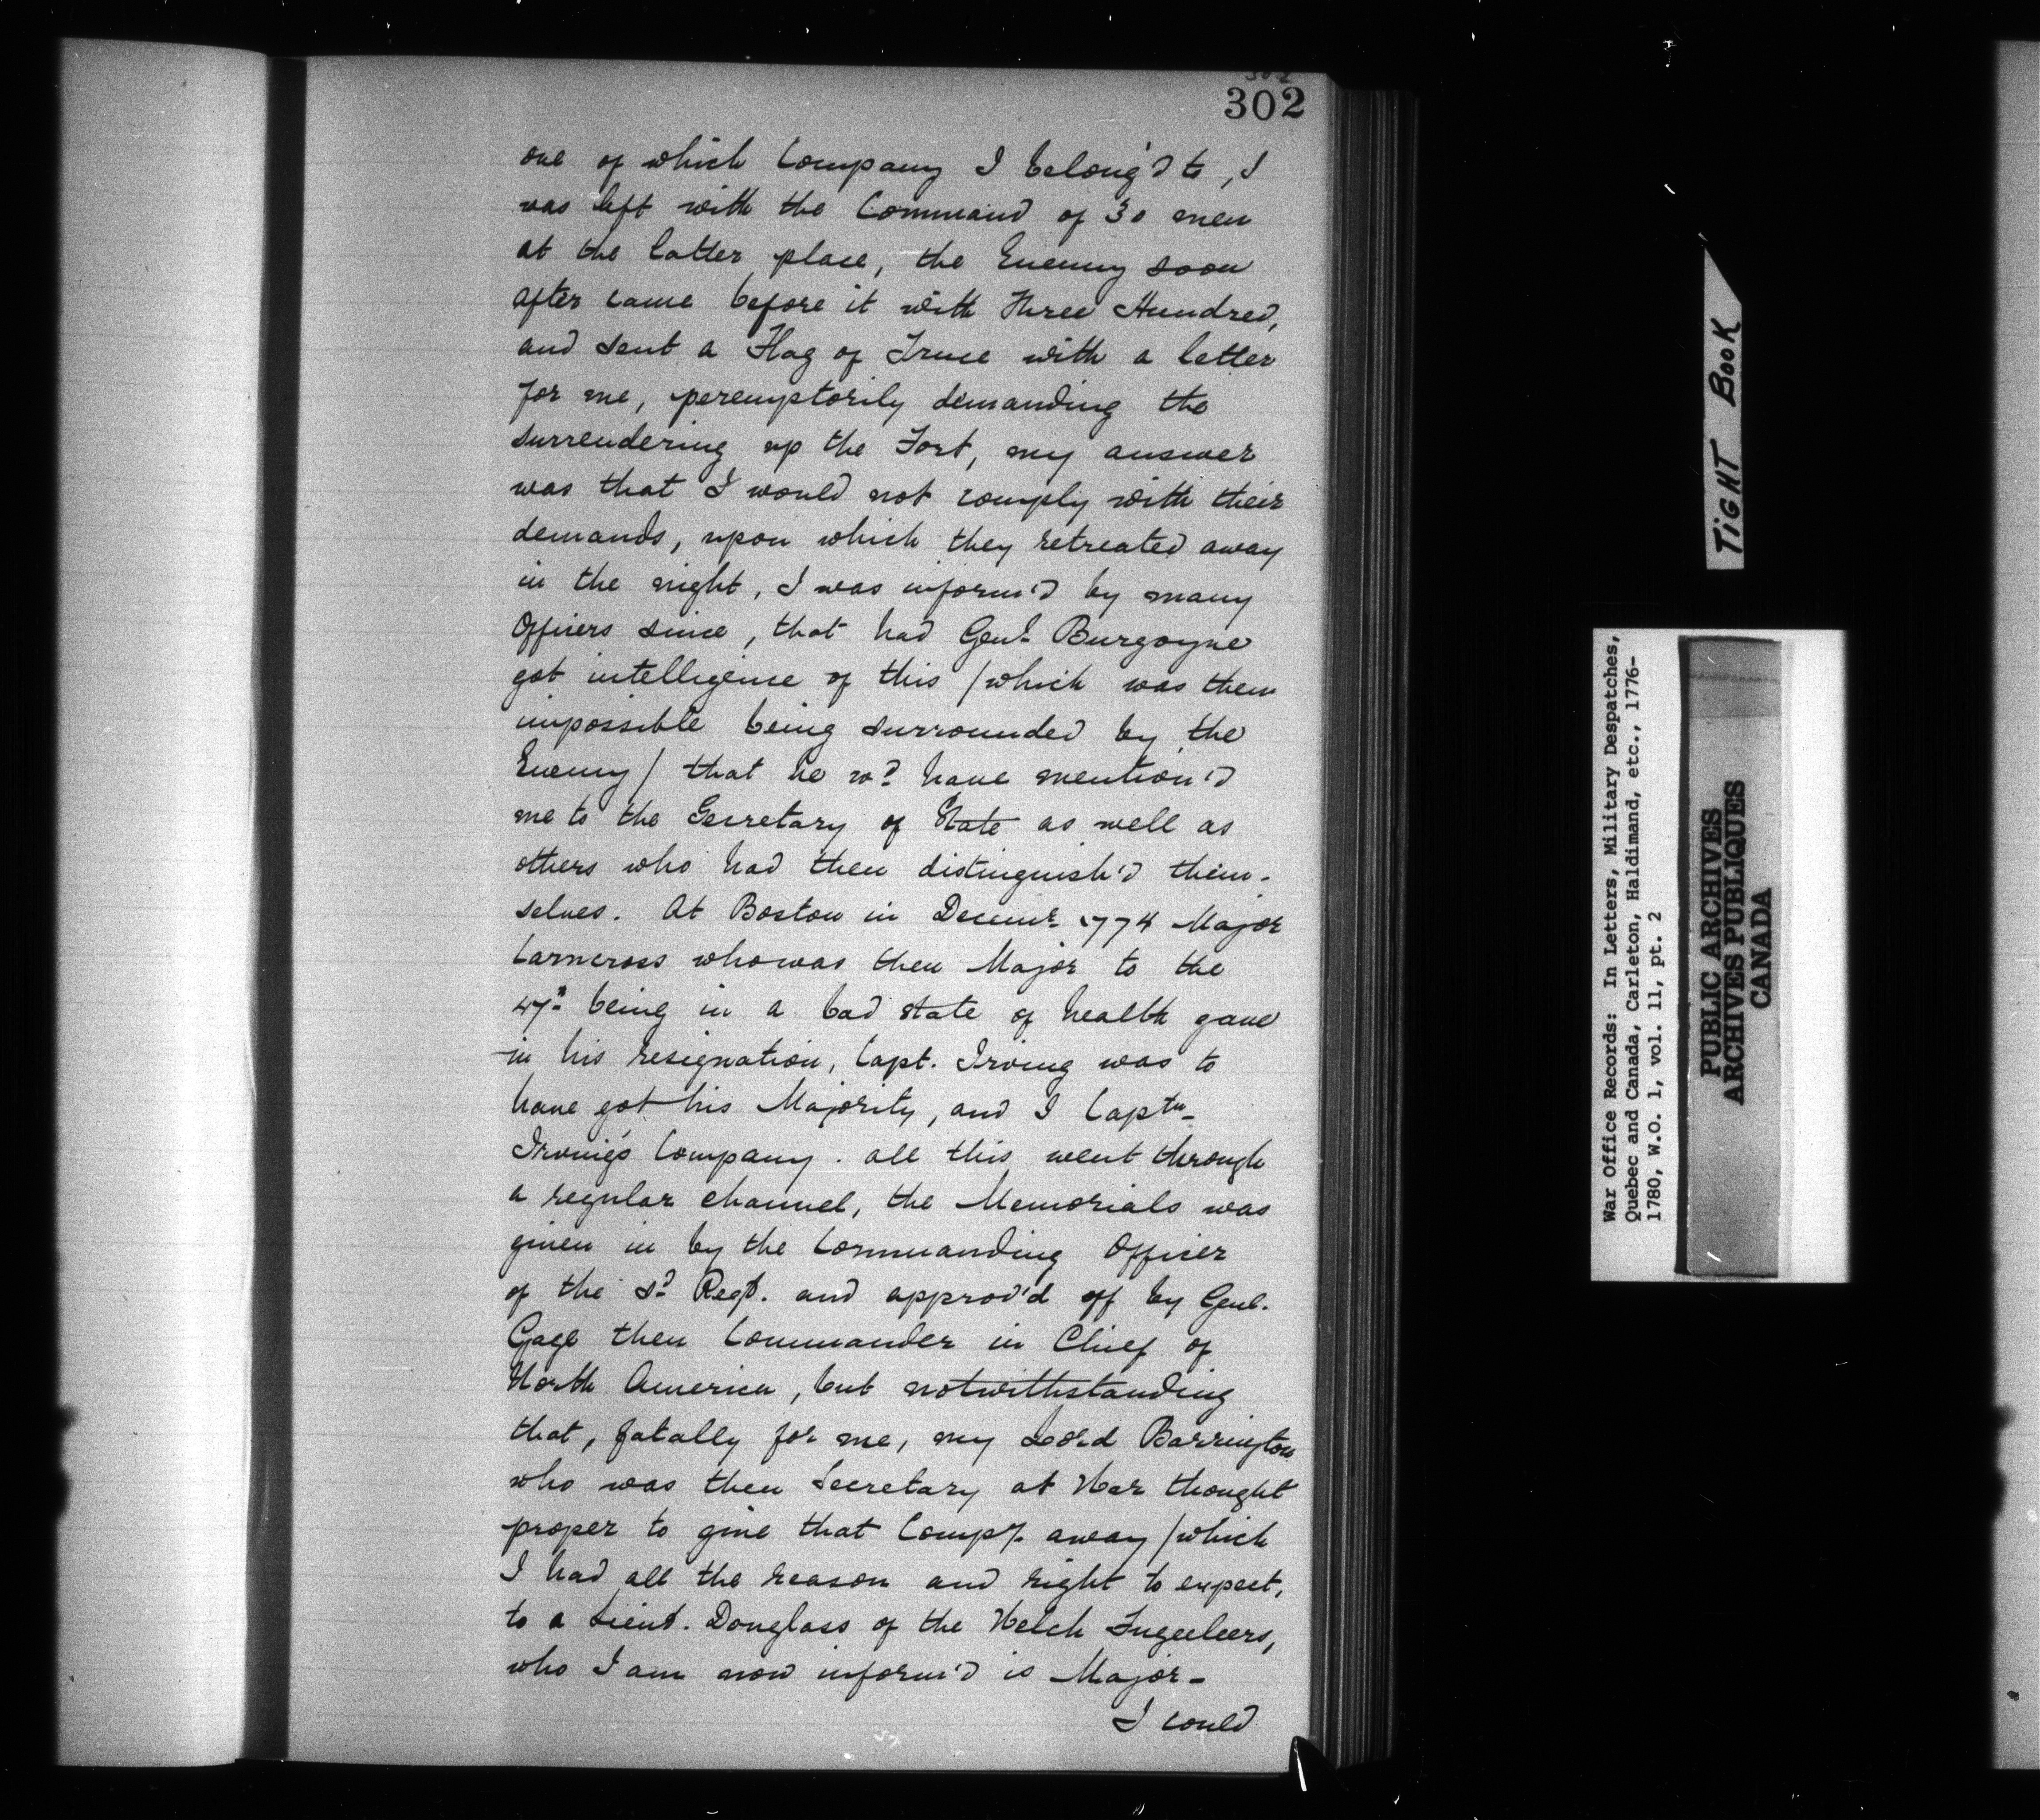 302
one of which Company I belong'd to, I
was left with the Command of 30 men
at the latter place, the Enemy soon
after came before it with three Hundred,
and sent a Flag of Truce with a letter
for me, peremptorily demanding the
surrendering up the Fort, my answer
was that I would not comply with their
demands, upon which they retreated away
in the night, I was inform'd by many
Officers since, that had Genl. Burgoyne
got intelligence of this / which was then
impossible being surrounded by the
Enemy / that he wd. have mention'd
me to the Secretary of State as well as
others who had then distinguish'd them-
selves. At Boston in Decemr. 1774 Major
Carncross who was then Major to the
47th being in a bad state of health gave
in his resignation, Capt. Irving was to
have got his Majority, and I Captn.
Irving's Company. all this went through
a regular channel, the Memorials was
given in by the Commanding Officer
of the sd. Regt. and approv'd off by Genl.
Gage then Commander in Chief of
North America, but notwithstanding
that, fatally for me, my Lord Barrington
who was then Secretary at War thought
proper to give that Compy. away / which
I had all the reason and right to expect,
to a Lieut. Douglass of the Welch Fuzeleers,
who I am now inform'd is Major-
I could
TIGHT BOOK
War Office Records: In Letters, Military Despatches,
Quebec and Canada, Carleton, Haldimand, etc., 1776-
1780, W.O. 1, vol. 11, pt. 2
PUBLIC ARCHIVES
ARCHIVES PUBLIQUES
CANADA